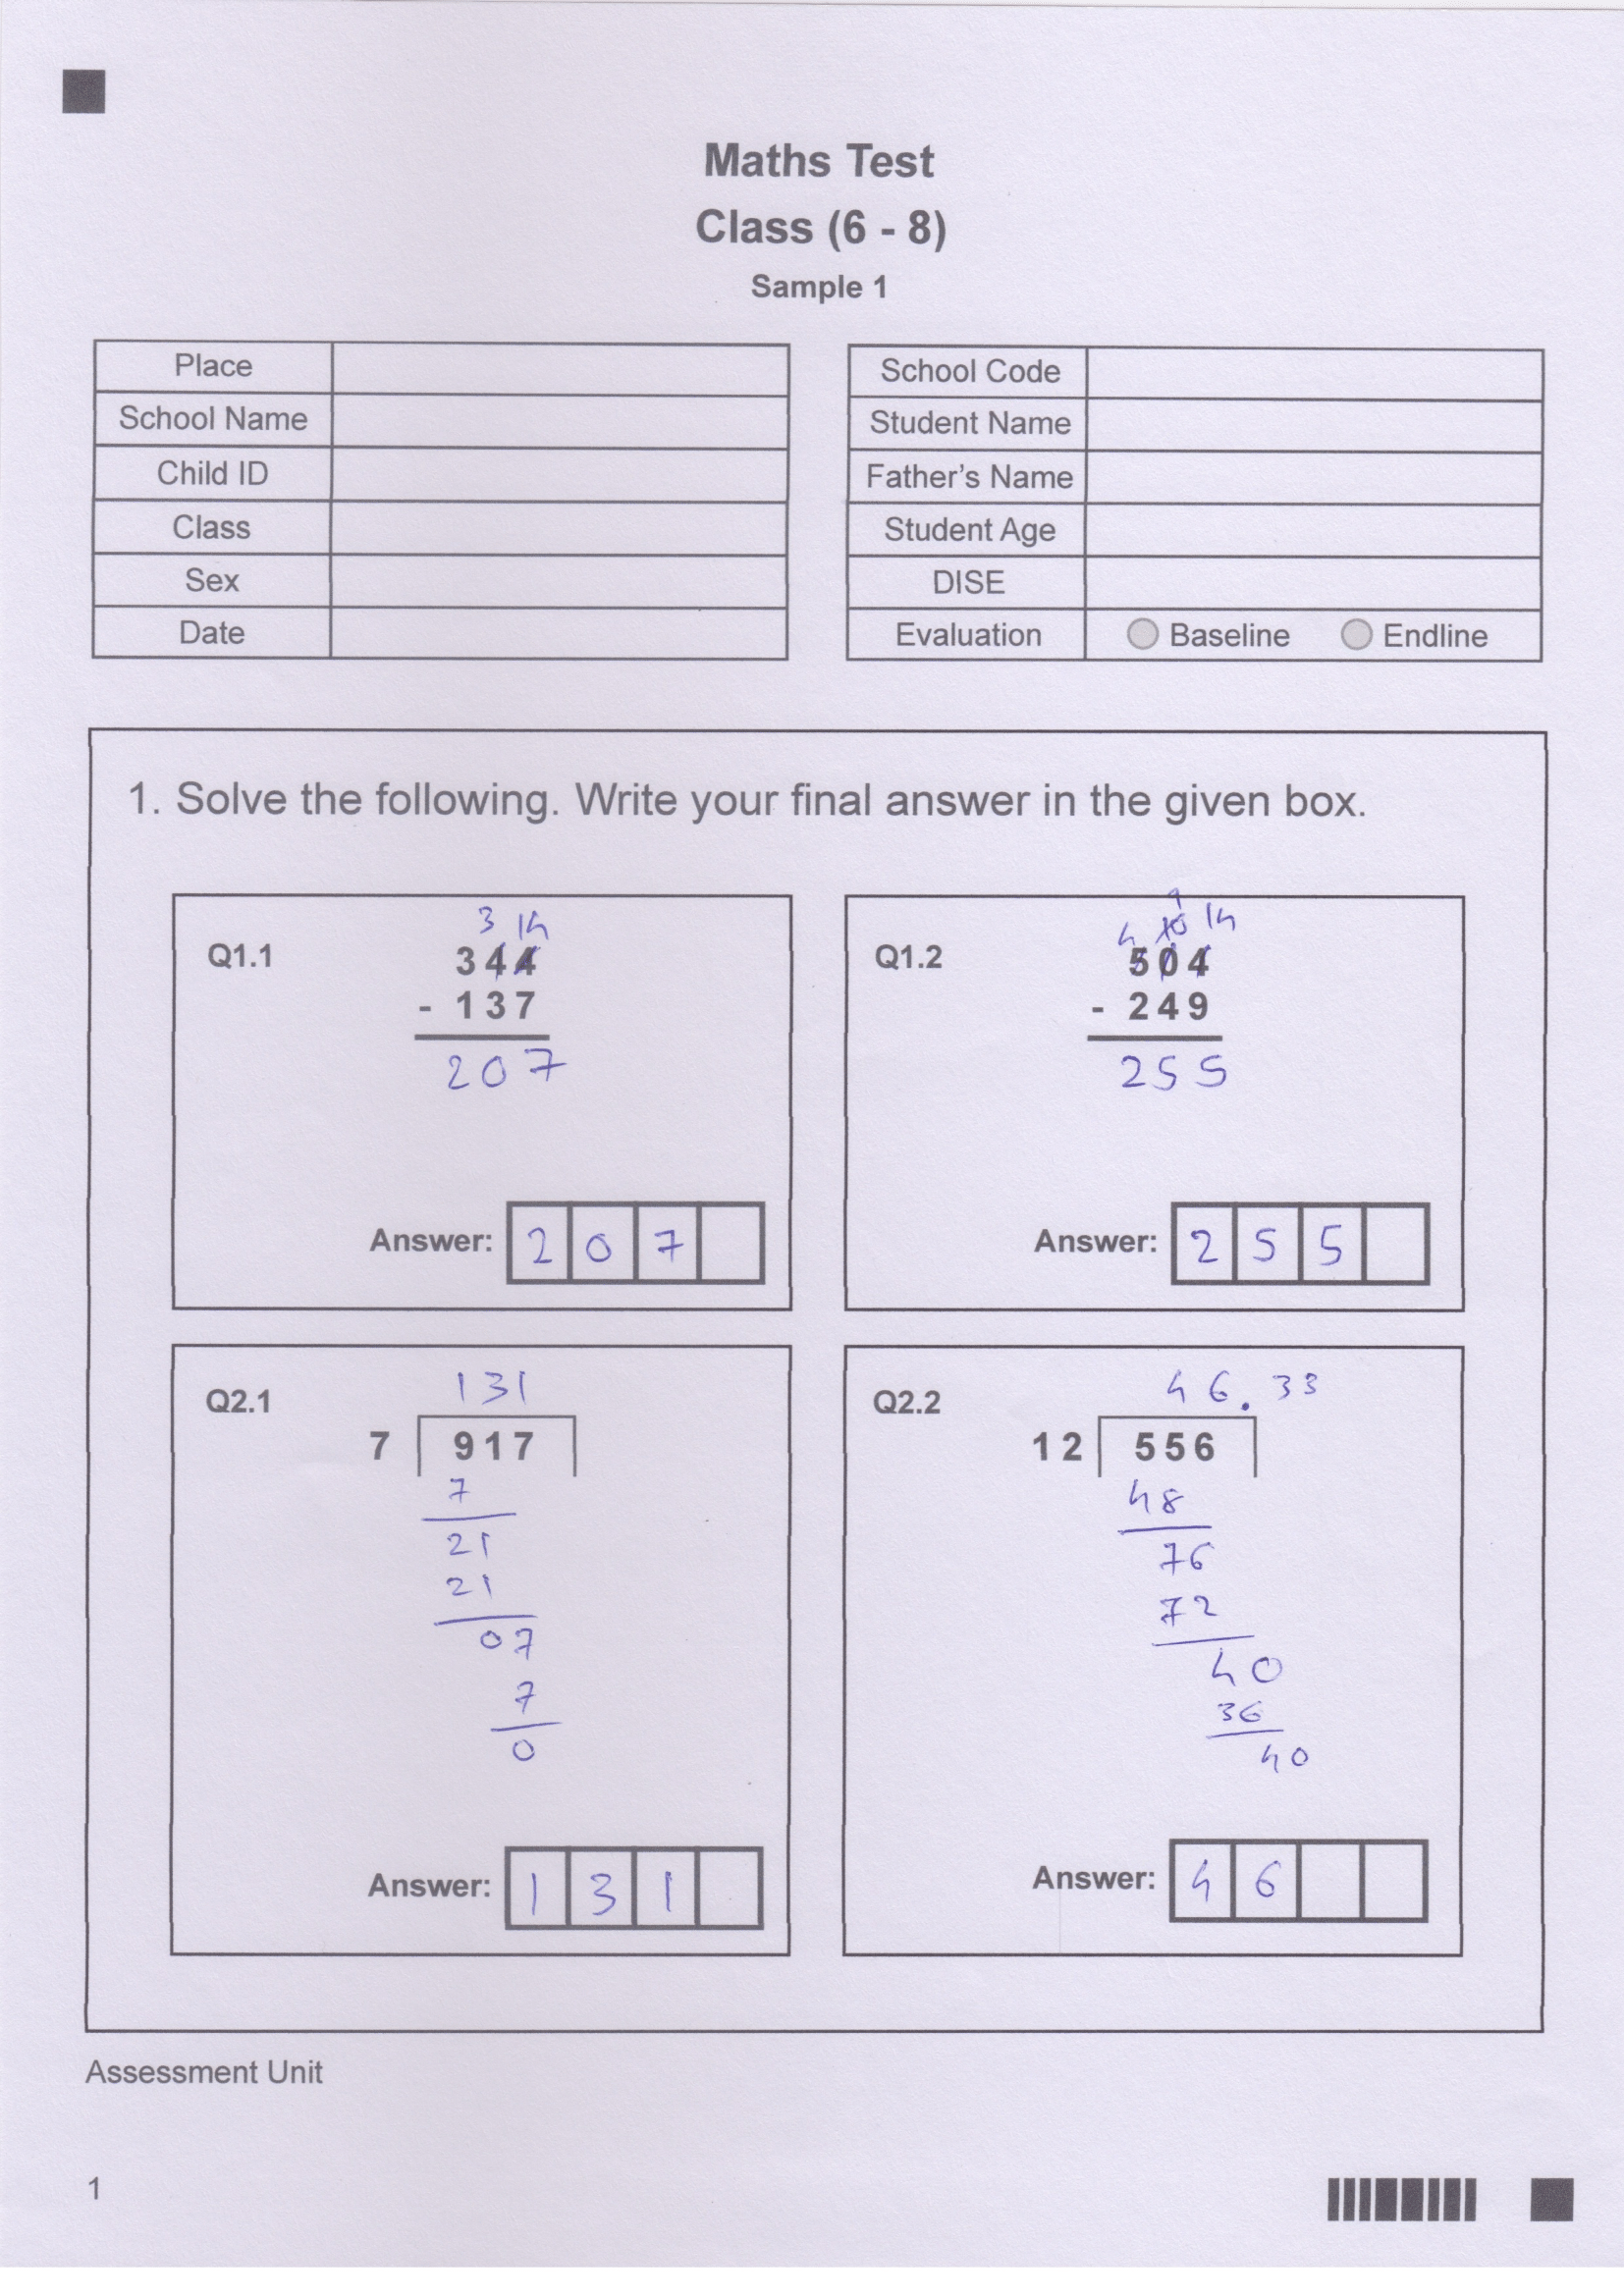 Maths Test
Class (6 - 8)
Sample 1
Place
School Name
Child ID
Class
Sex
Date
School Code
Student Name
Father's Name
Student Age
DISE
Evaluation Baseline Endline
1. Solve the following. Write your final answer in the given box.
Q1.1
3 14
3 4 4
- 1 3 7
2 0 7
Answer: 2 0 7
Q1.2
9
4 10 14
5 0 4
- 2 4 9
2 5 5
Answer: 2 5 5
Q2.1
1 3 1
7 9 1 7
7
2 1
2 1
0 7
7
0
Answer: 1 3 1
Q2.2
4 6 . 3 3
1 2 5 5 6
4 8
7 6
7 2
4 0
3 6
4 0
Answer: 4 6
Assessment Unit
1